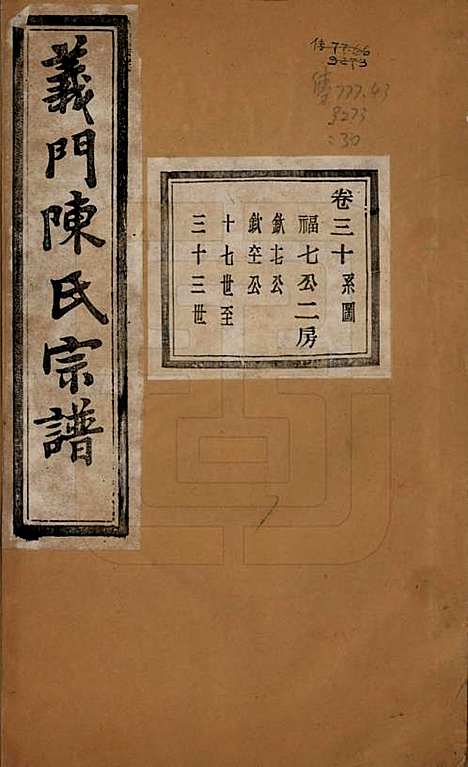 義門陳氏宗譜
卷三十系圖
福七公二房
欽七公
欽至公
十七世至
三十三世
傳777.43
9273
:30